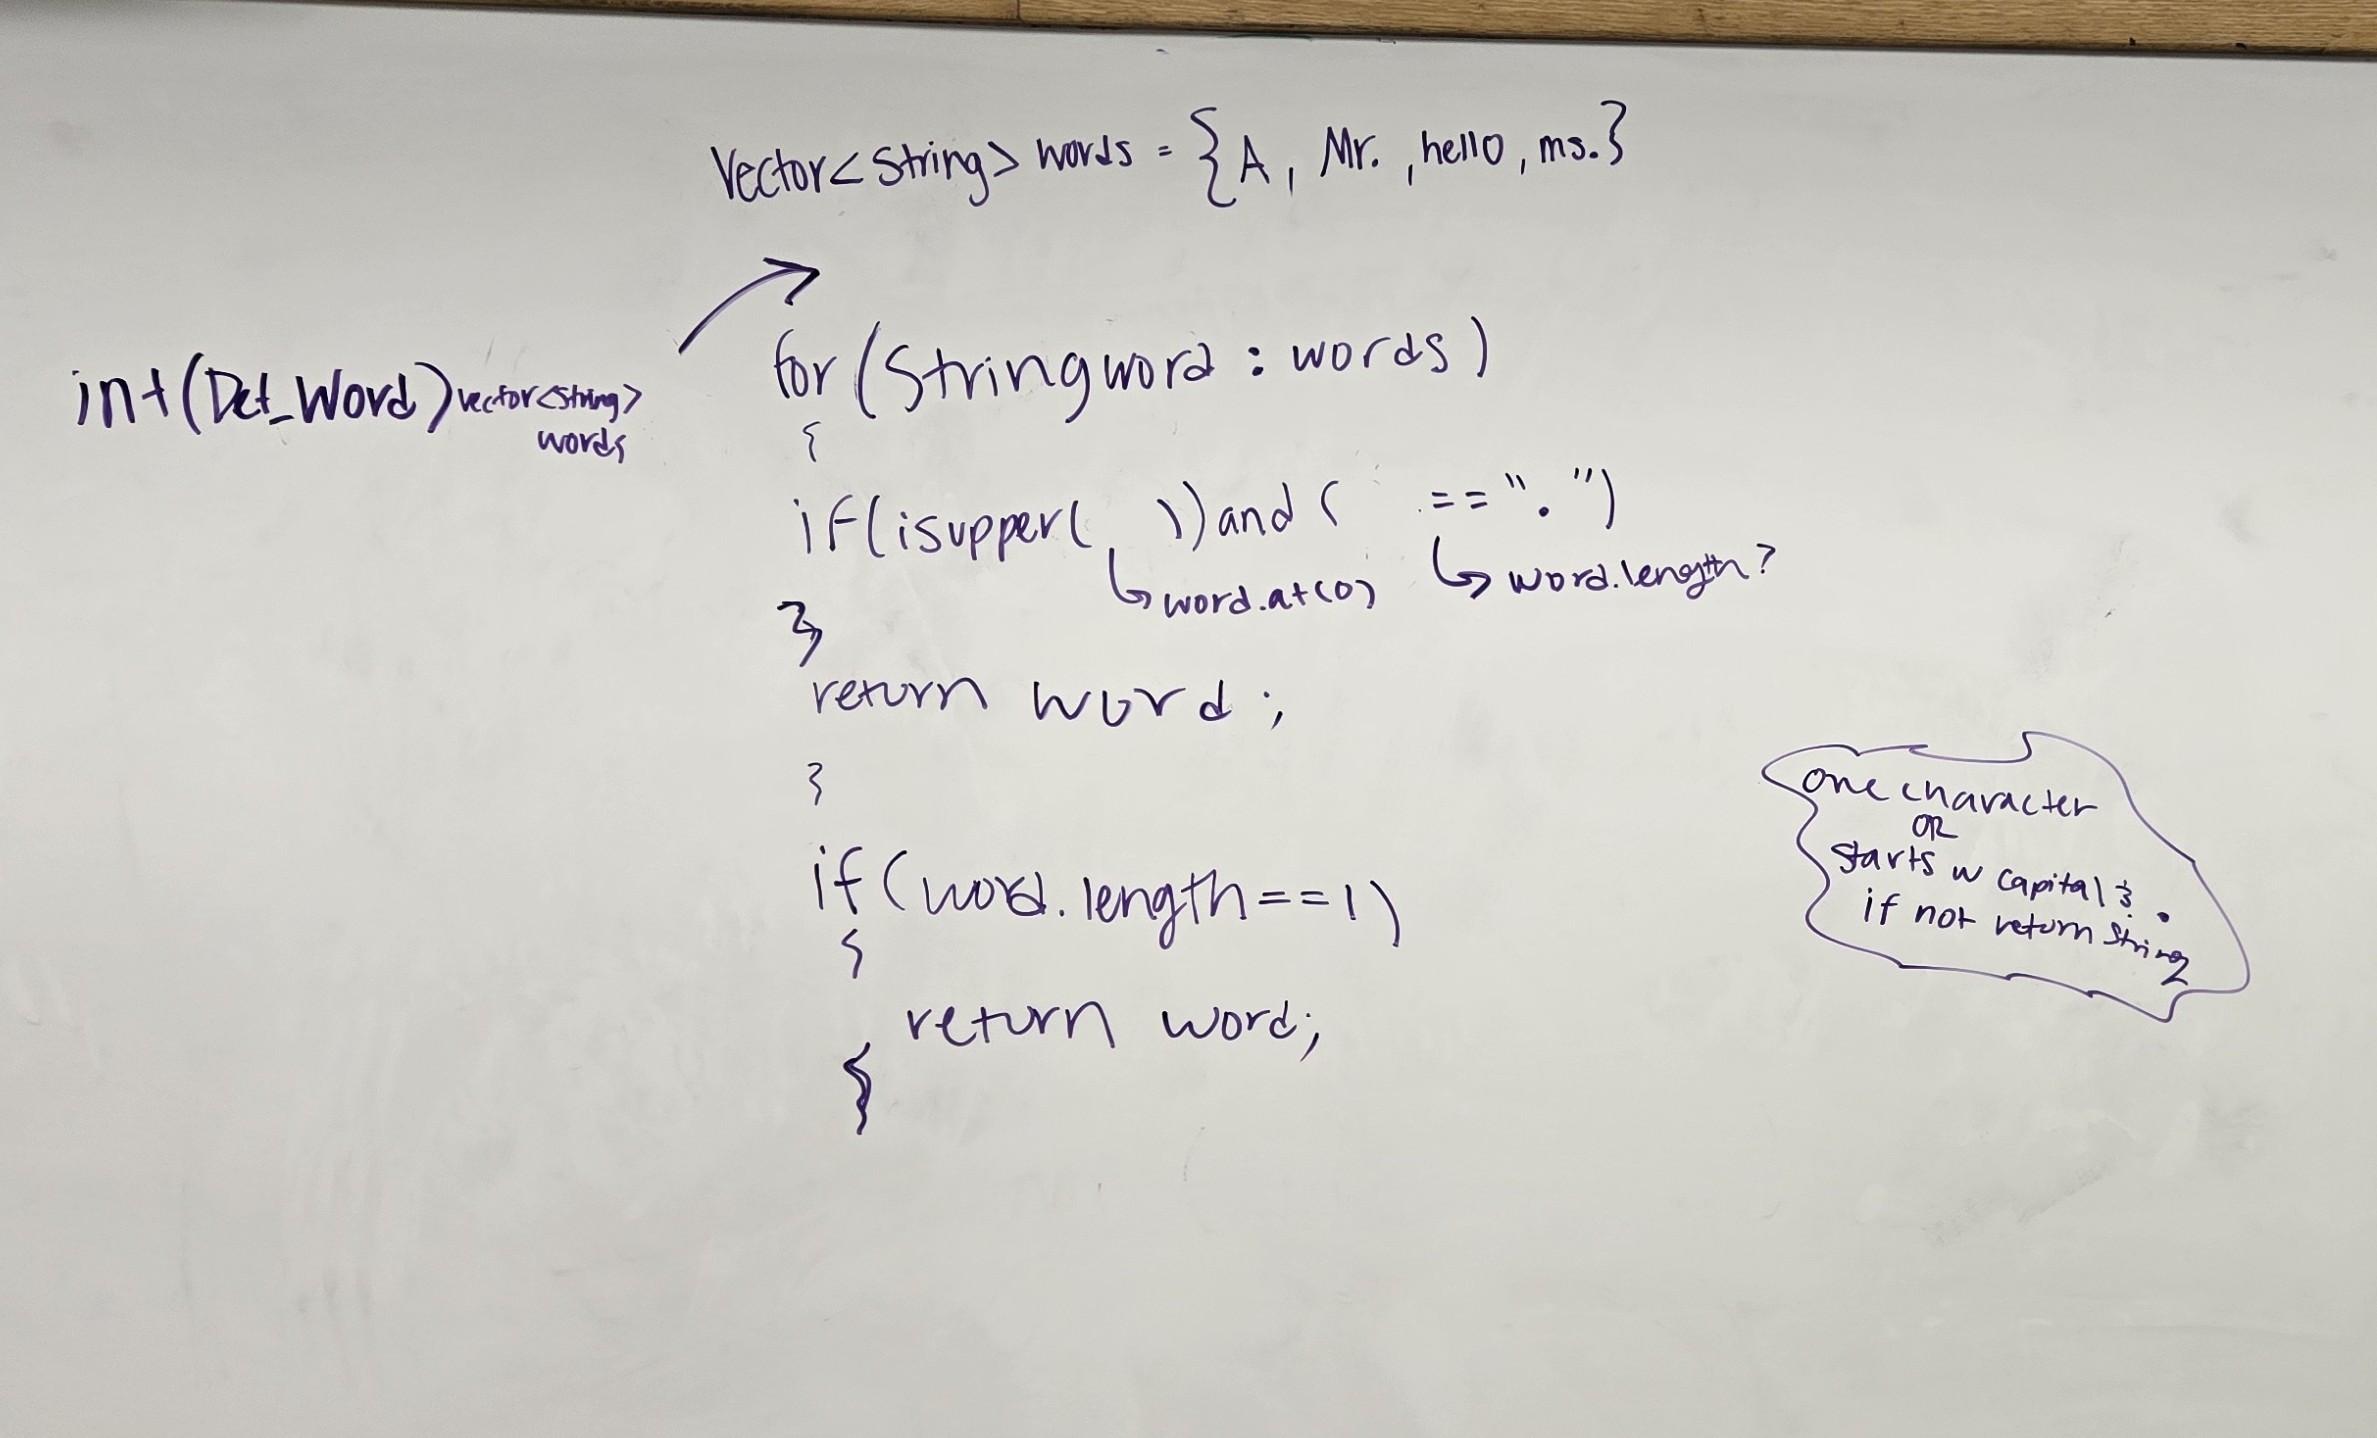 Vector<String> words = {A, Mr., hello, ms.}
int(Det_Word) vector<string>
words
for (String word : words)
{
if(isupper( ))and ( == ".")
word.at(0)
word.length?
}
return word;
}
if (word.length==1)
{
return word;
{
one character
OR
starts w capital & .
if not return string